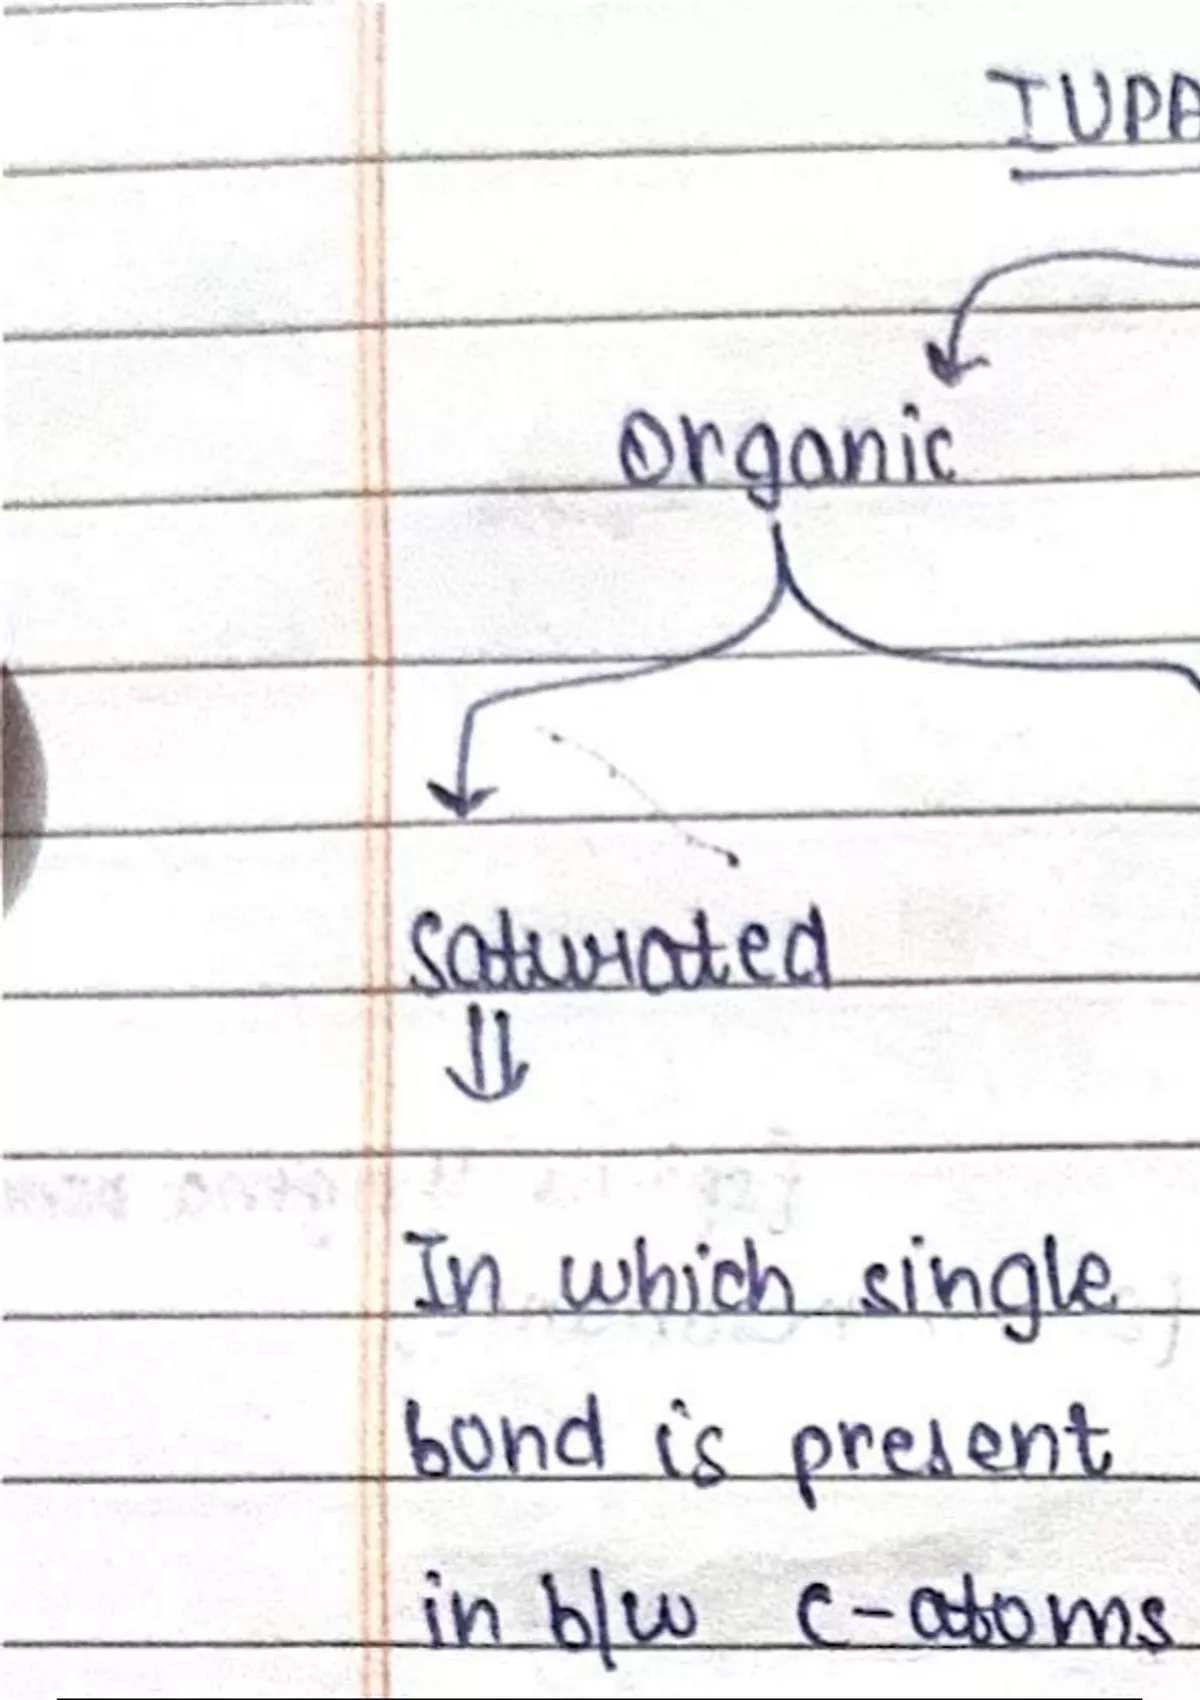 IUPA
Organic
Saturated
In which single
bond is present
in b/w c-atoms